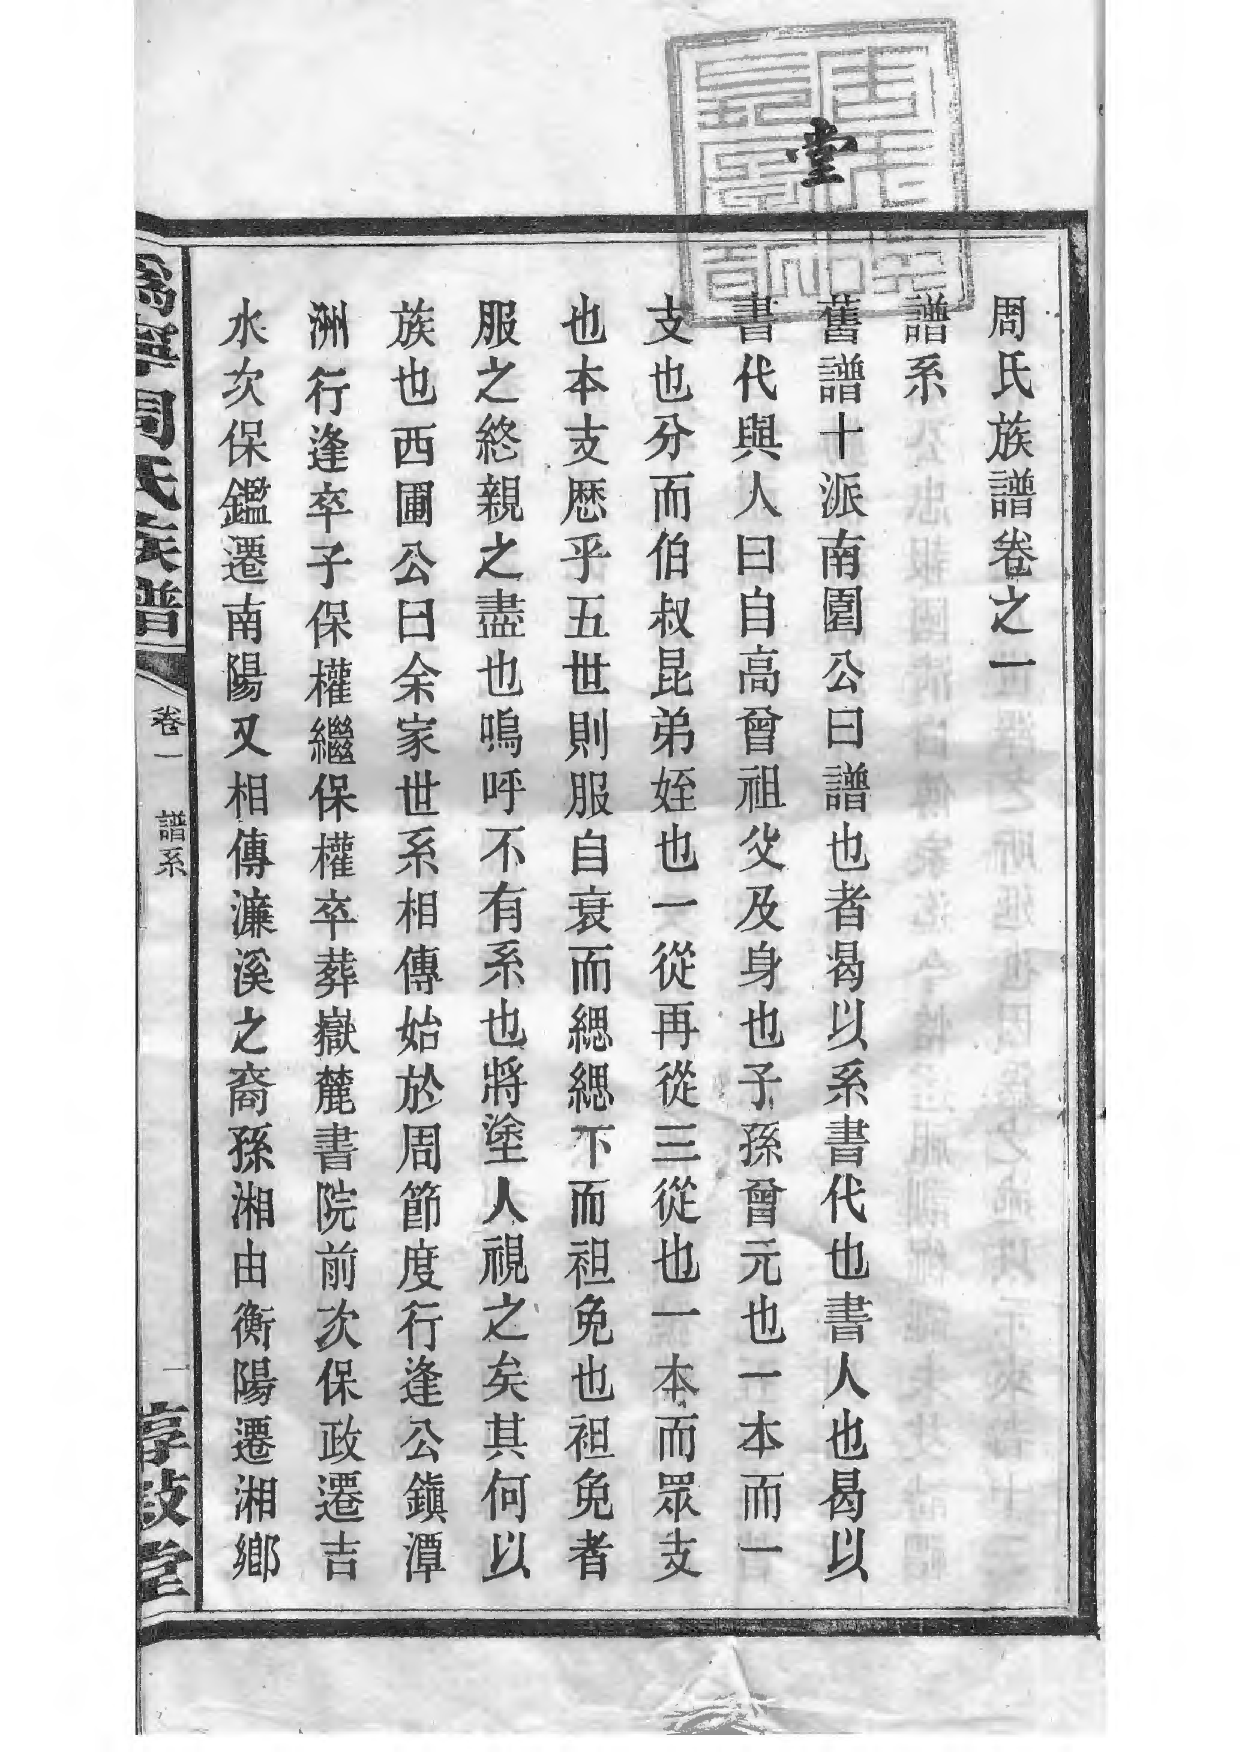 堂
周氏族譜卷之一
譜系
舊譜十派南園公曰譜也者曷以系書代也書人也曷以
書代與人曰自高曾祖父及身也子孫曾元也一本而一
支也分而伯叔昆弟姪也一從再從三從也一本而眾支
也本支歷乎五世則服自衰而緦緦不而袒免也袒免者
服之終親之盡也嗚呼不有系也將塗人視之矣其何以
族也西圃公曰余家世系相傳始於周節度行逢公鎮潭
洲行逢卒子保權繼保權卒葬嶽麓書院前次保政遷吉
水次保鑑遷南陽又相傳濂溪之裔孫湘由衡陽遷湘鄉
溈寧周氏族譜
卷一
譜系
一
惇敘堂